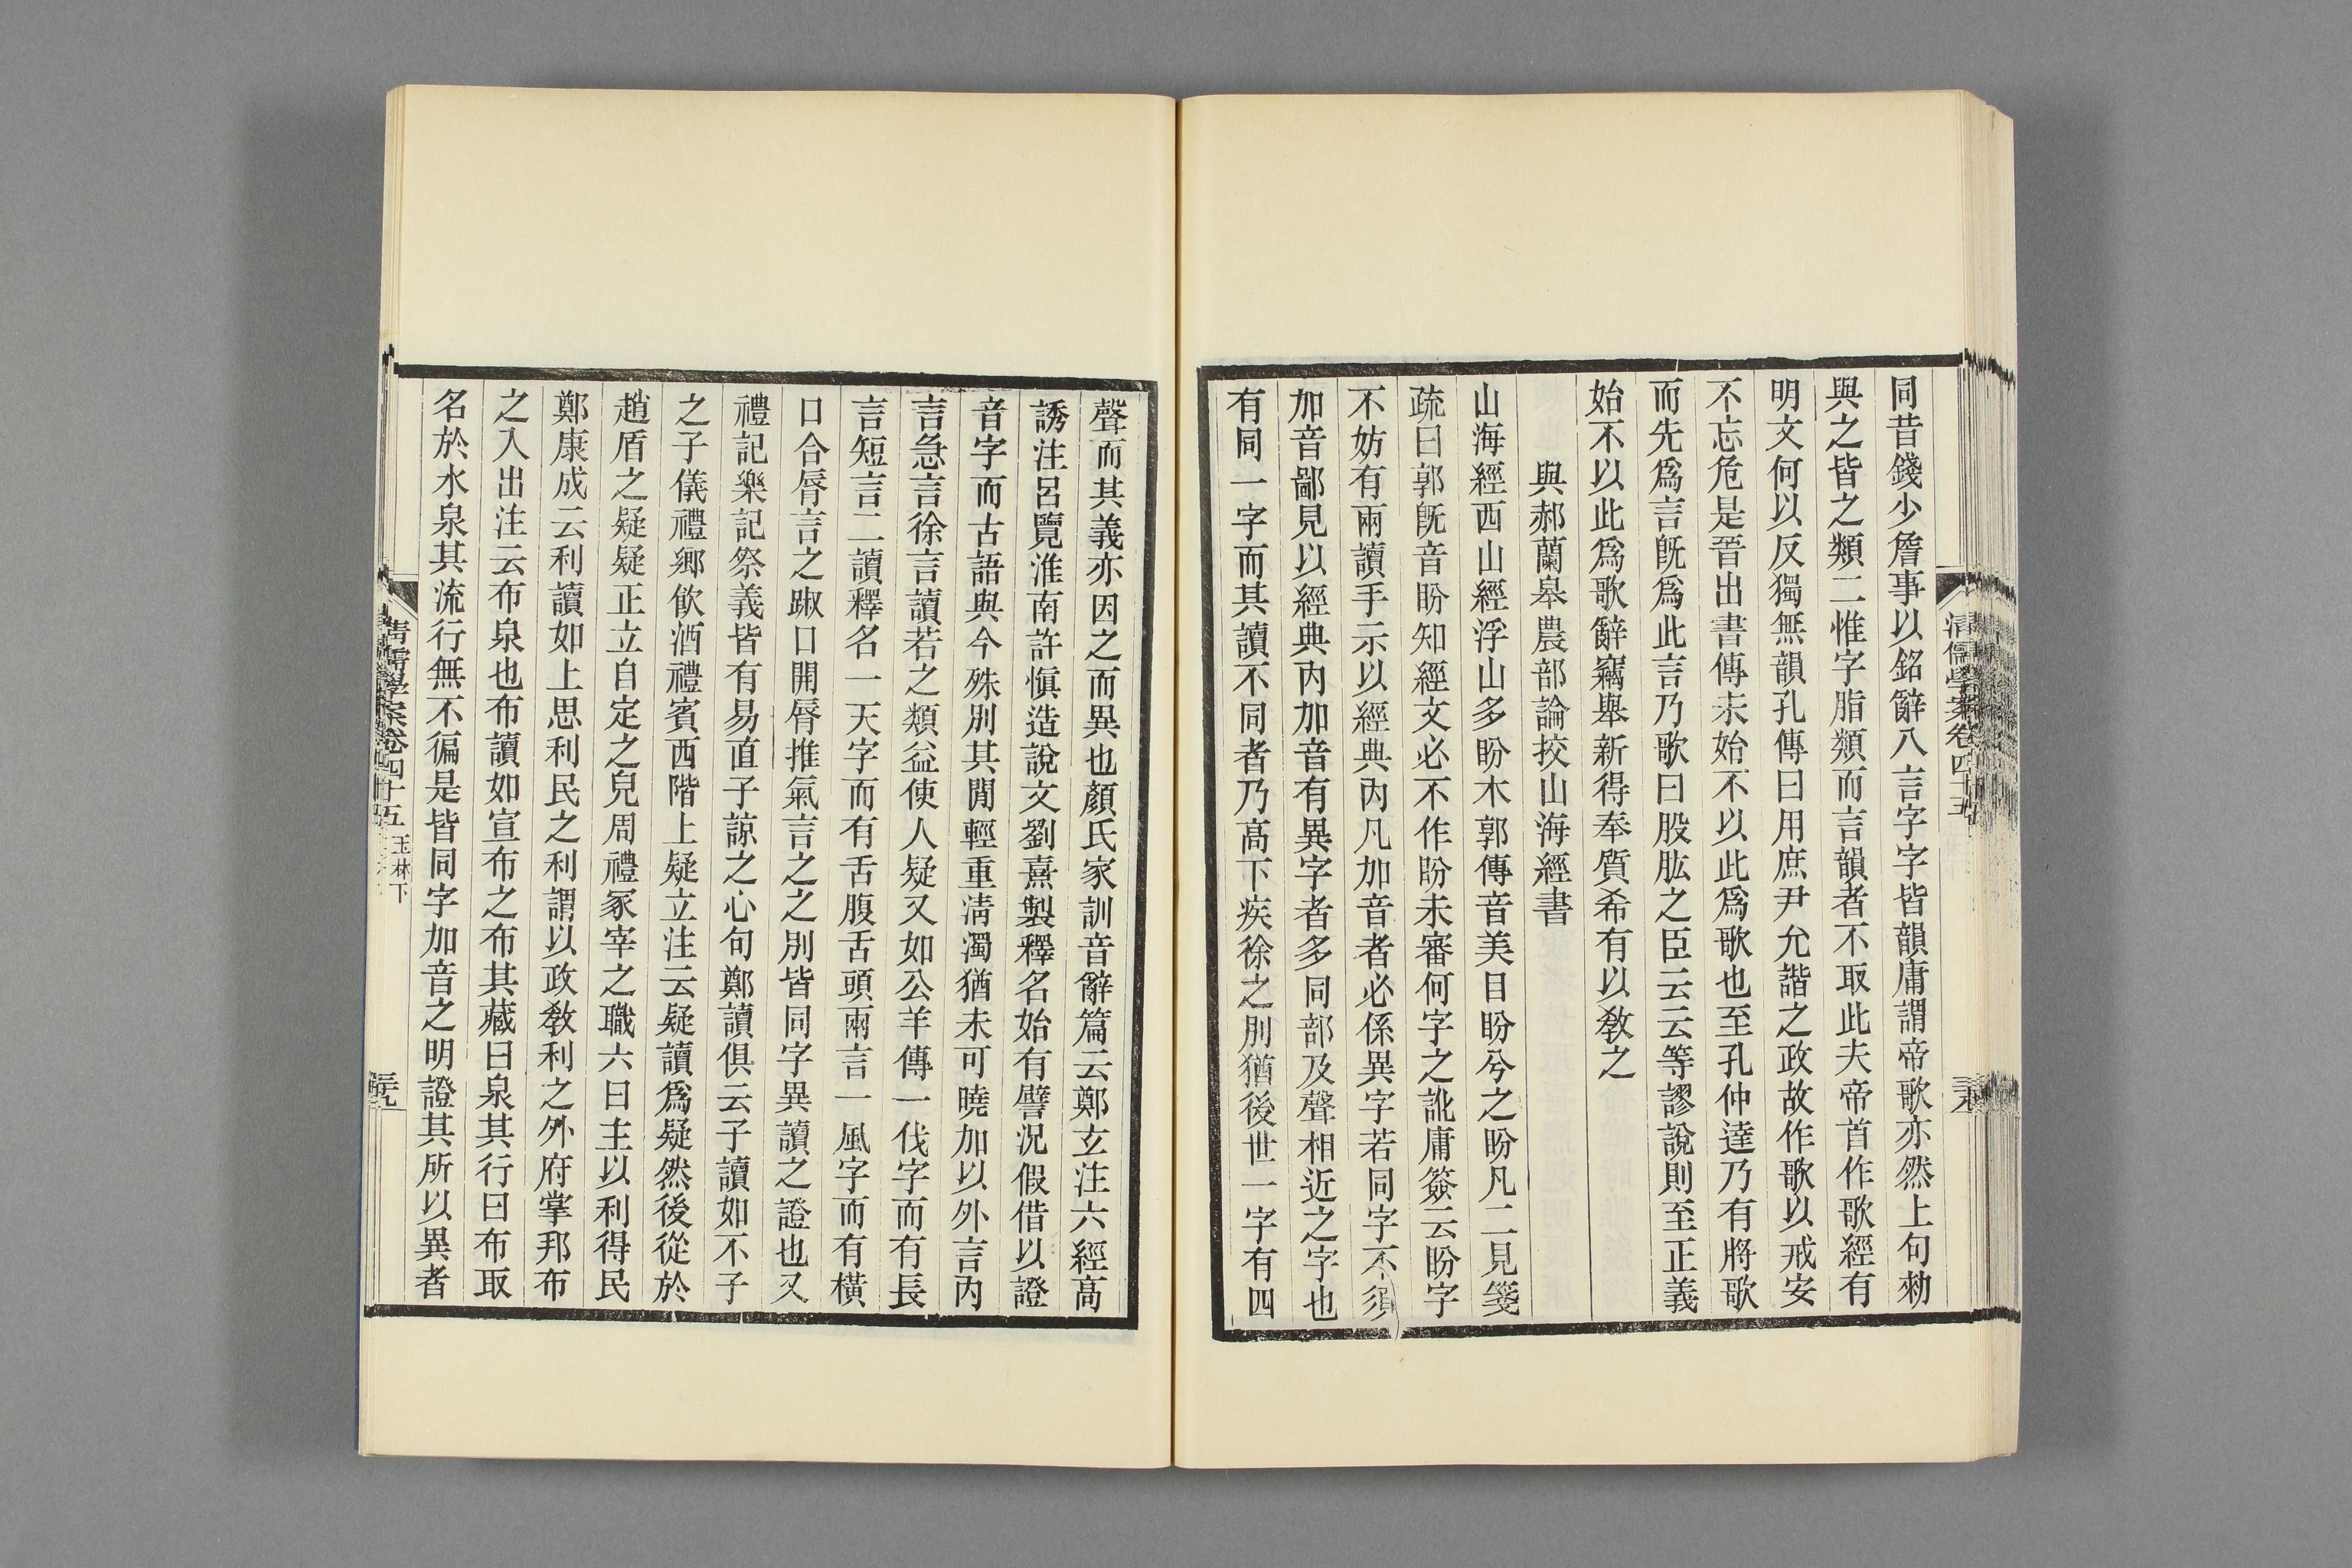 同昔錢少詹事以銘辭八言字字皆韻庸謂帝歌亦然上句勑
與之皆之類二惟字脂類而言韻者不取此夫帝首作歌經有
明文何以反獨無韻孔傳曰用庶尹允諧之政故作歌以戒安
不忘危是晉出書傳未始不以此爲歌也至孔仲達乃有將歌
而先爲言旣爲此言乃歌曰股肱之臣云云等謬說則至正義
始不以此爲歌辭竊舉新得奉質希有以敎之
與郝蘭皋農部論挍山海經書
山海經西山經浮山多盼木郭傳音美目盼兮之盼凡二見箋
疏曰郭旣音盼知經文必不作盼未審何字之訛庸簽云盼字
不妨有兩讀手示以經典內凡加音者必係異字若同字不須
加音鄙見以經典內加音有異字者多同部及聲相近之字也
有同一字而其讀不同者乃高下疾徐之別猶後世一字有四
聲而其義亦因之而異也顏氏家訓音辭篇云鄭玄注六經高
誘注呂覽淮南許愼造說文劉熹製釋名始有譬況假借以證
音字而古語與今殊別其閒輕重淸濁猶未可曉加以外言內
言急言徐言讀若之類益使人疑又如公羊傳一伐字而有長
言短言二讀釋名一天字而有舌腹舌頭兩言一風字而有橫
口合脣言之踧口開脣推氣言之之別皆同字異讀之證也又
禮記樂記祭義皆有易直子諒之心句鄭讀俱云子讀如不子
之子儀禮鄉飮酒禮賓西階上疑立注云疑讀爲疑然後從於
趙盾之疑疑正立自定之皃周禮冢宰之職六曰主以利得民
鄭康成云利讀如上思利民之利謂以政敎利之外府掌邦布
之入出注云布泉也布讀如宣布之布其藏曰泉其行曰布取
名於水泉其流行無不徧是皆同字加音之明證其所以異者
淸儒學案卷四十五 玉林下